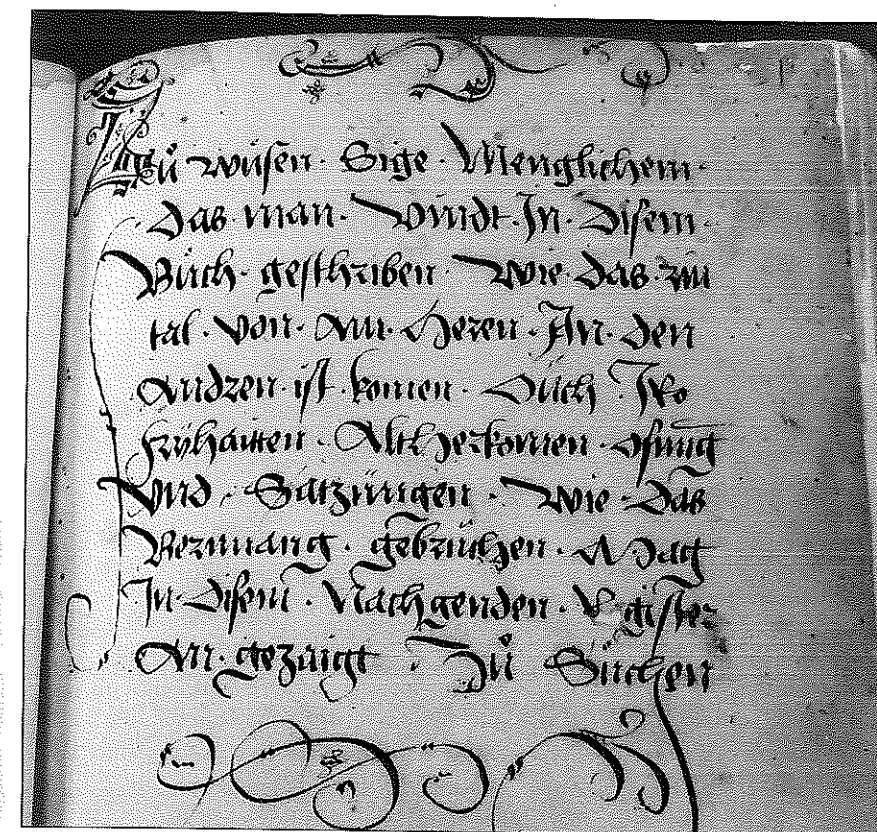 Zů wüsen · Sige · Menglichem ·
Das man · Windt · In · Disem ·
Büch · gesthriben · Wie · Das · Rin
tal · Von · Am · Heren · An · Den
Andren · ist · komen · Düch · Ire
fryhaiten · Altt herkomen · ofnung
Vnd · Satzüngen · Wie · Das
Yezmang · gebrüchen · Mag
In · Disem · Nachgenden · Register
An · gezaigt · Zů Süchen